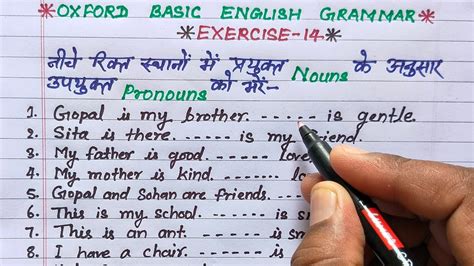 *OXFORD BASIC ENGLISH GRAMMAR*
*EXERCISE-14*
नीचे रिक्त स्थानों में प्रयुक्त Nouns के अनुसार
उपयुक्त Pronouns को भरें:-
1. Gopal is my brother. ------ is gentle.
2. Sita is there. ------ is my friend.
3. My father is good. ------ love
4. My mother is kind. ------ lo
5. Gopal and Sohan are friends. ---
6. This is my school. ------ is s
7. This is an ant. ------ is sm
8. I have a chair. ------ is